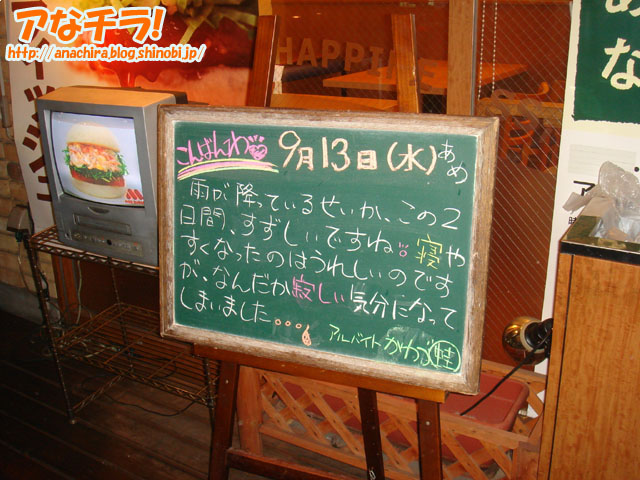 アなチラ!
http://anachira.blog.shinobi.jp/
HAPPINE
あめ
な
こんばんわ 9月13日(水)あめ
雨が降っているせいか、この2
日間、すずしいですね。寝や
すくなったのはうれしいのです
が、なんだか寂しい気分になって
しまいました…
アルバイト かわづ 蛙